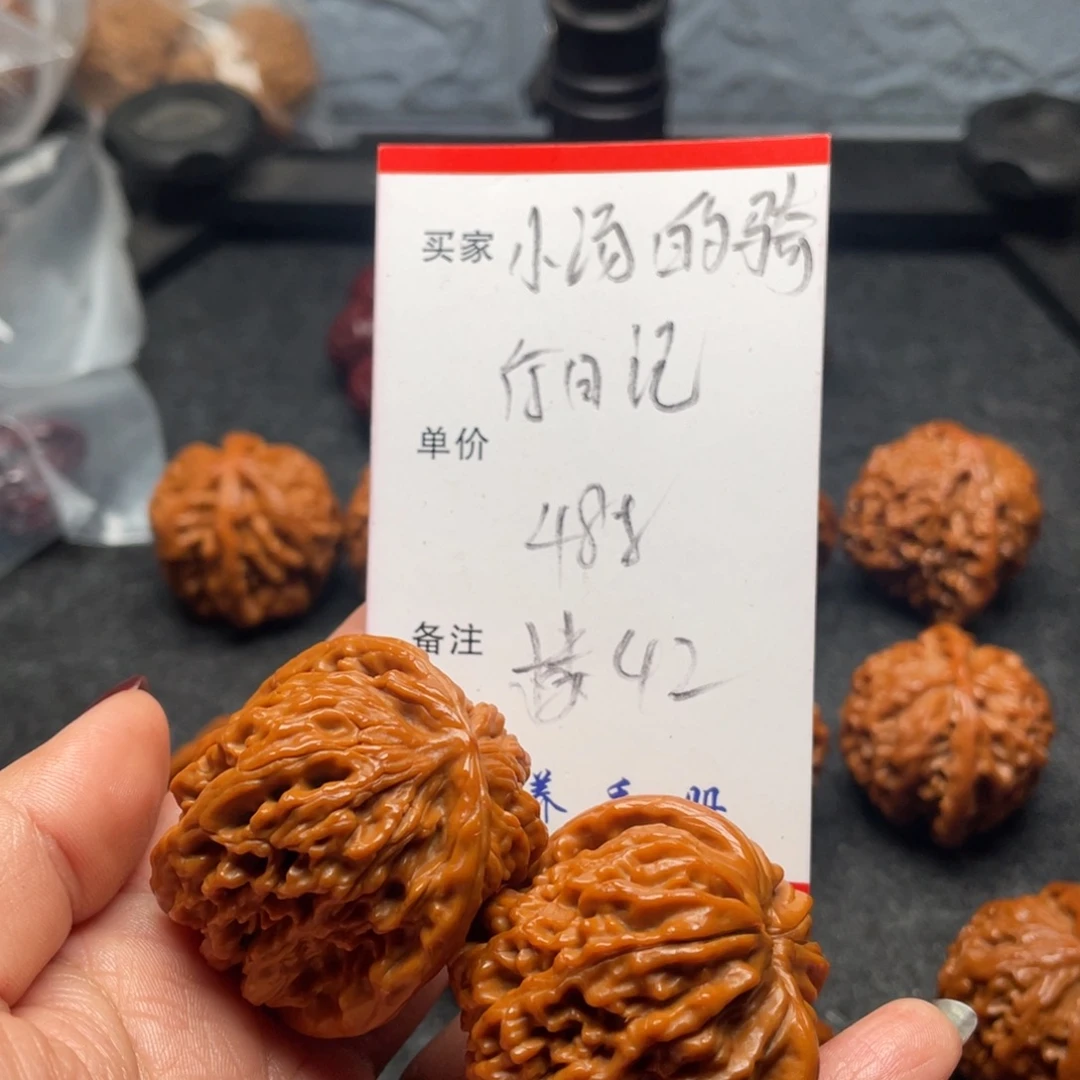 买家 小汤的骑
行日记
单价
488
备注 42
养手